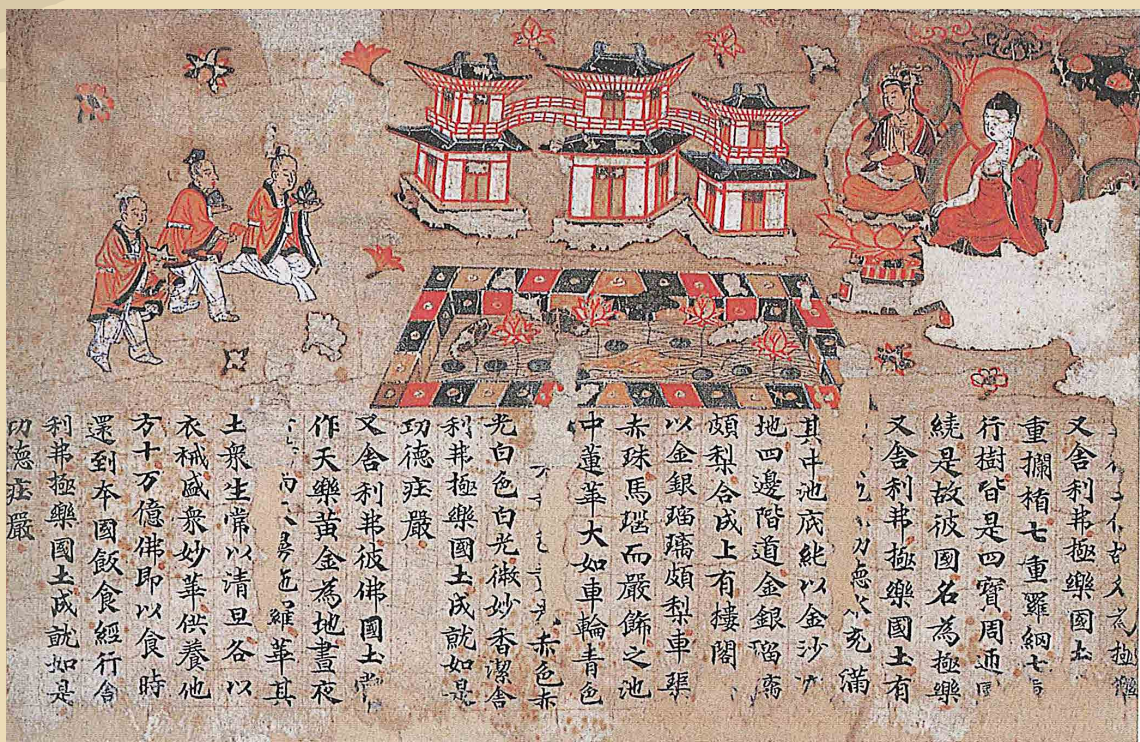 為極樂
又舍利弗極樂國土
重欄楯七重羅網七
行樹皆是四寶周迊
繞是故彼國名為極樂
又舍利弗極樂國土有
功德水充滿
其中池底純以金沙
地四邊階道金銀瑠璃
頗梨合成上有樓閣
以金銀瑠璃頗梨車渠
赤珠馬瑙而嚴飾之池
中蓮華大如車輪青色
赤色赤
光白色白光微妙香潔舍
利弗極樂國土成就如是
功德莊嚴
又舍利弗彼佛國土常
作天樂黃金為地晝夜
羅華其
土衆生常以清旦各以
衣裓盛衆妙華供養他
方十万億佛即以食時
還到本國飯食經行舍
利弗極樂國土成就如是
功德莊嚴